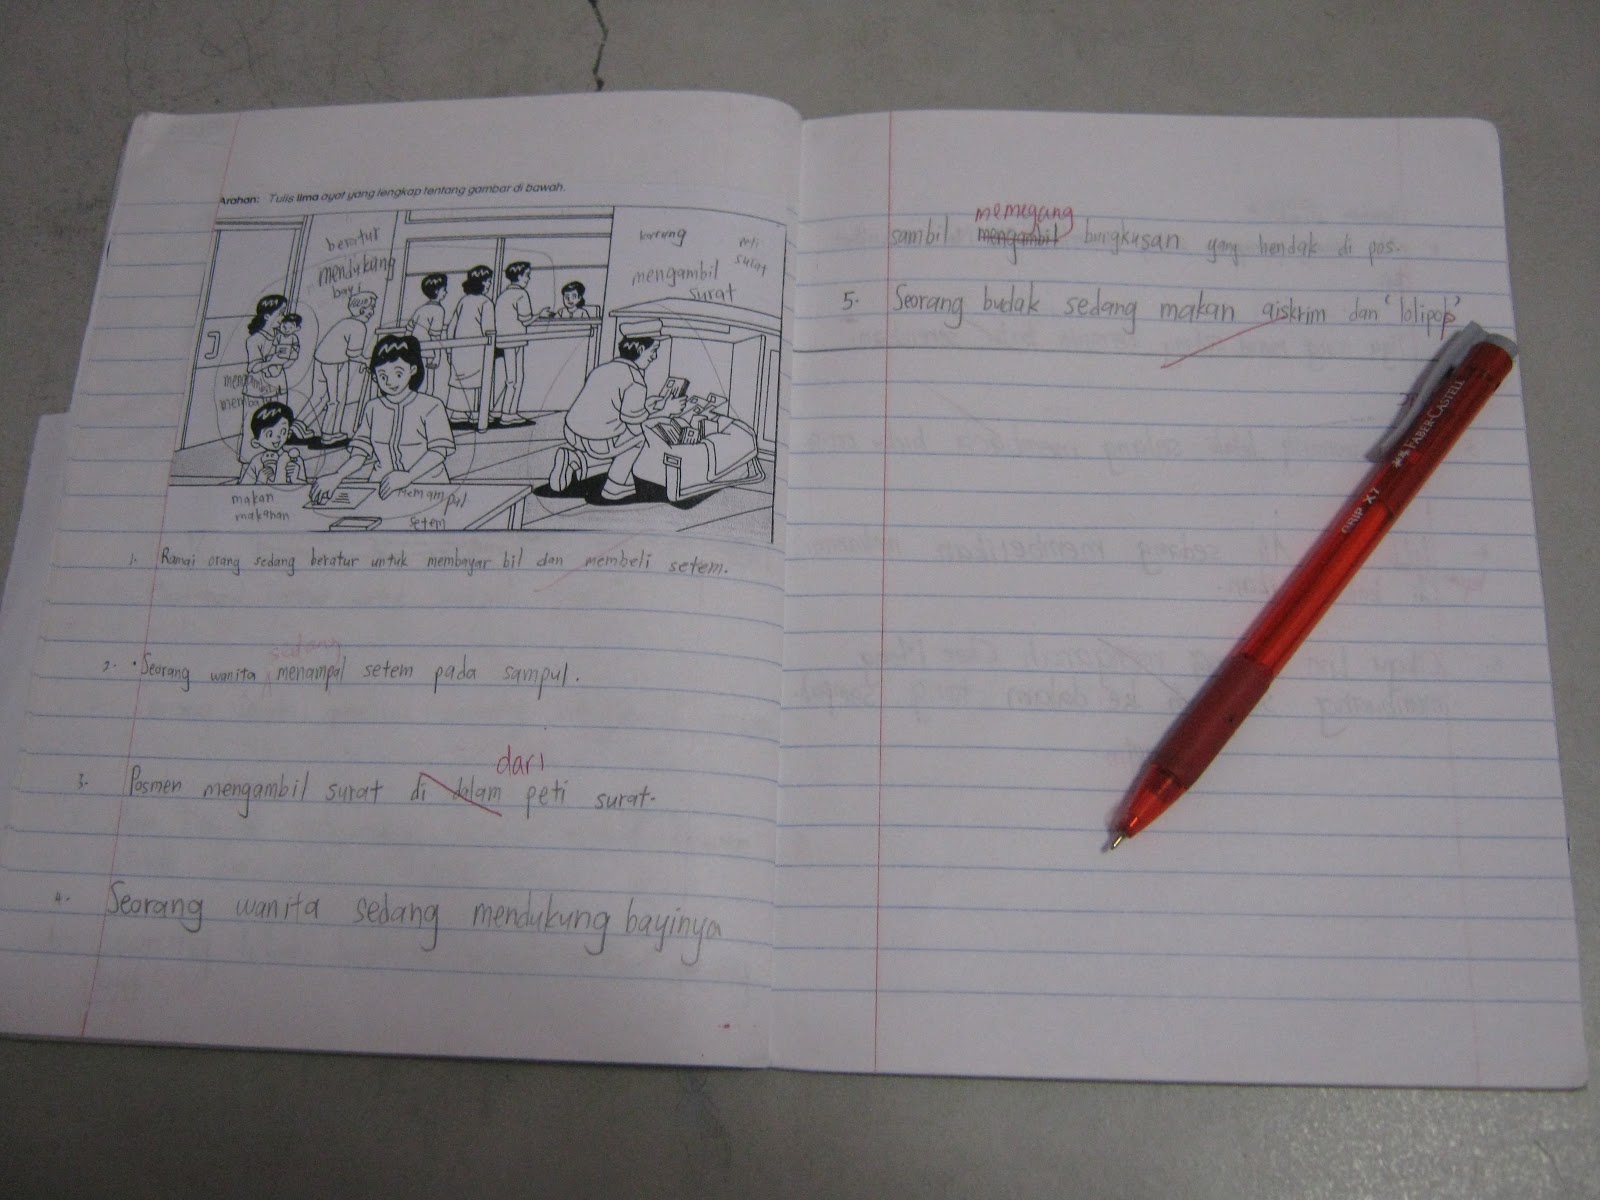 Arahan: Tulis lima ayat yang lengkap tentang gambar di bawah.
beratur
mendukung
bayi
karung
peti
surat
mengambil
surat
makan
makanan
menampal
setem
1. Ramai orang sedang beratur untuk membayar bil dan membeli setem.
sedang
2. Seorang wanita menampal setem pada sampul.
dari
3. Posmen mengambil surat di dalam peti surat.
4. Seorang wanita sedang mendukung bayinya
memegang
sambil mengambil bungkusan yang hendak di pos.
5. Seorang budak sedang makan aiskrim dan 'lolipop'
FABER-CASTELL
GRIP X7